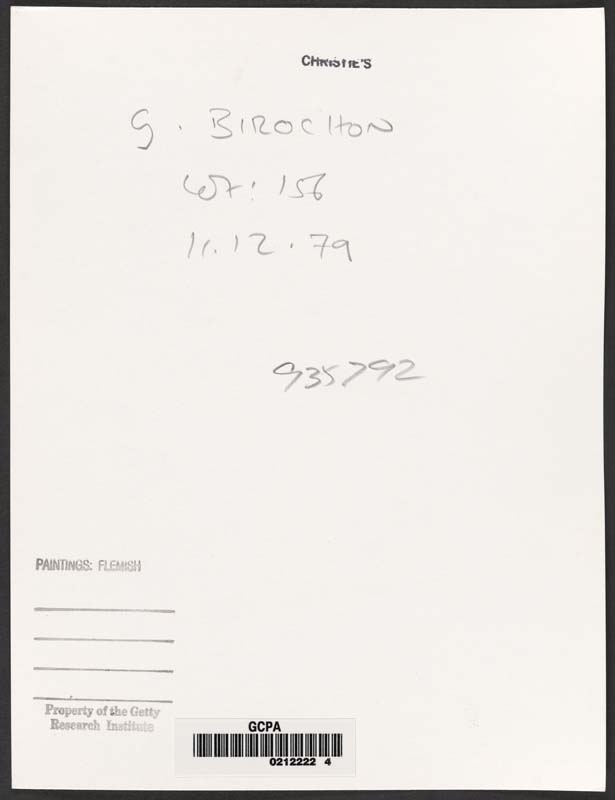 CHRISTIE'S
G. BIROCHON
Lot: 156
11.12.79
935792
PAINTINGS: FLEMISH
Property of the Getty
Research Institute
GCPA
0212222 4